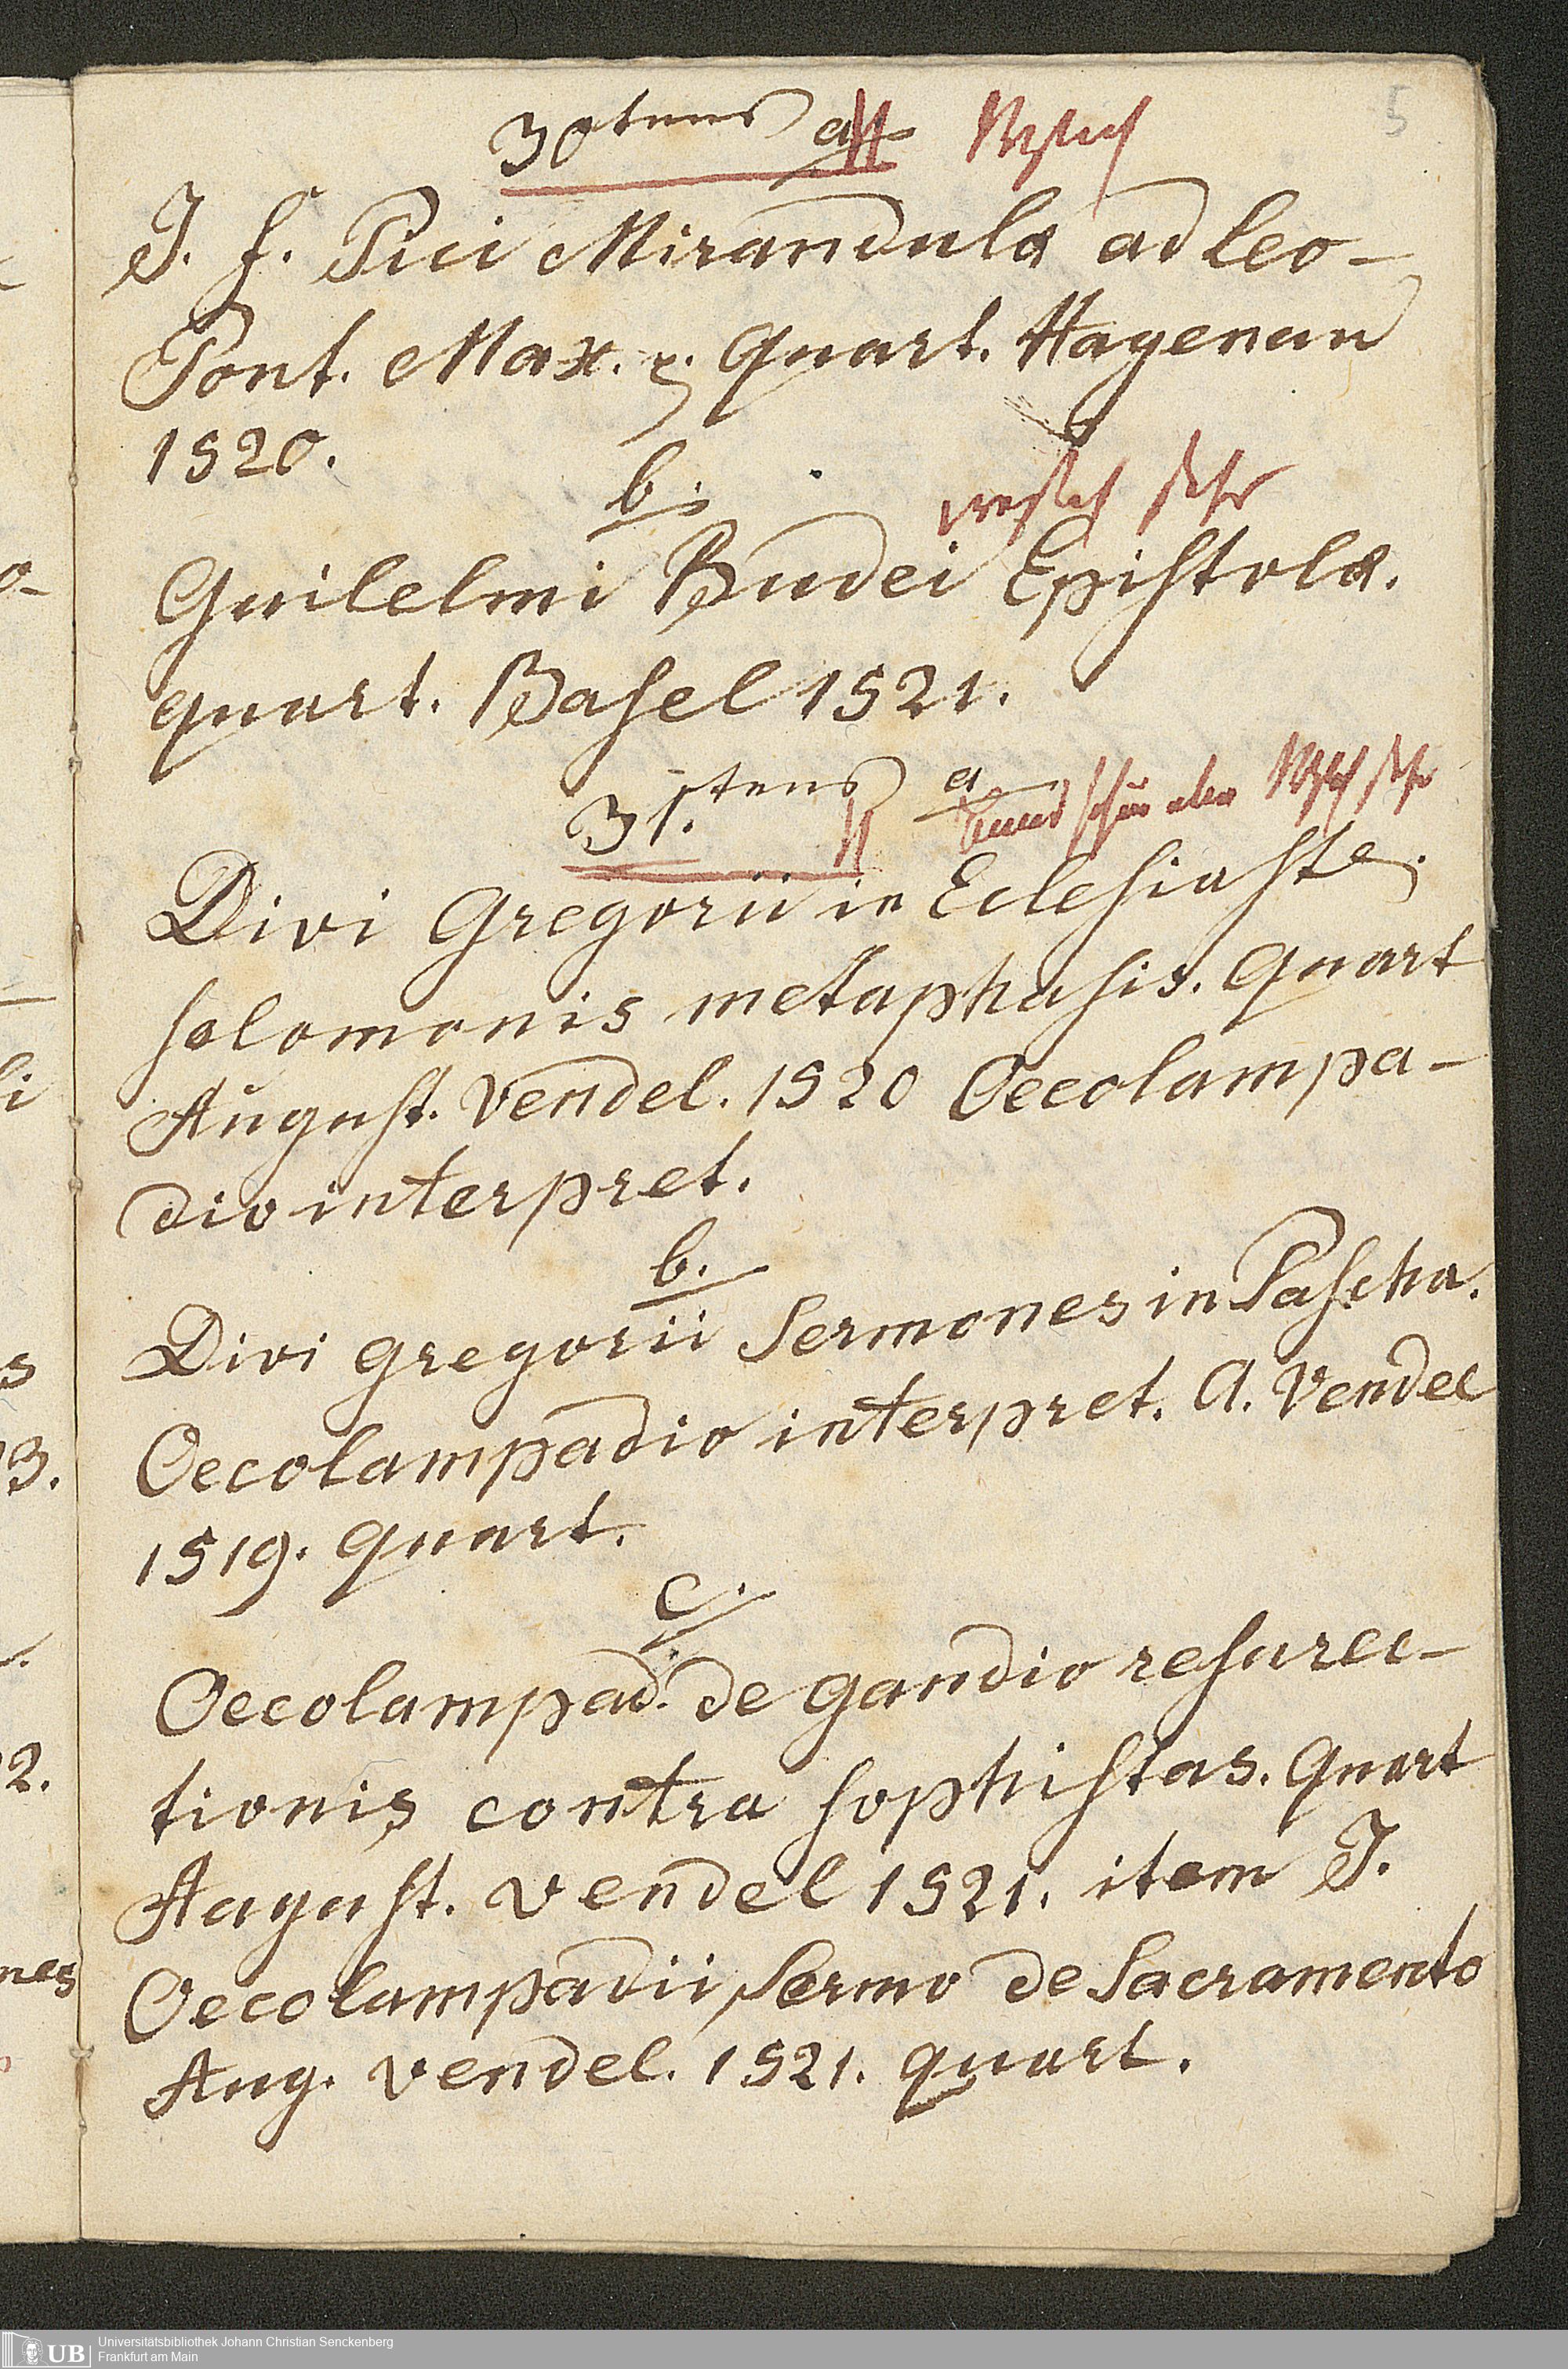 5
30tens a.
J. f. Pici Mirandula ad Leo-
Pont. Max. p. Quart. Hagenau
1520.
b.
Guilelmi Budei Epistola.
quart. Basel 1521.
31.tens a
Divi Gregorii in Eclesiaste.
Solomonis metaphasis. Quart
August. Vendel. 1520 Oecolampa-
dio interpret.
b.
Divi gregorii Sermones in Pascha.
Oecolampadio interpret. A. Vendel
1519. Quart.
c.
Oecolampad. de gaudio resurec-
tionis contra sophistas. Quart
August. vendel 1521. item J.
Oecolampadii Sermo de Sacramento
Aug. vendel. 1521. quart.
o-
li
s
3.
2.
nes
UB
Universitätsbibliothek Johann Christian Senckenberg
Frankfurt am Main